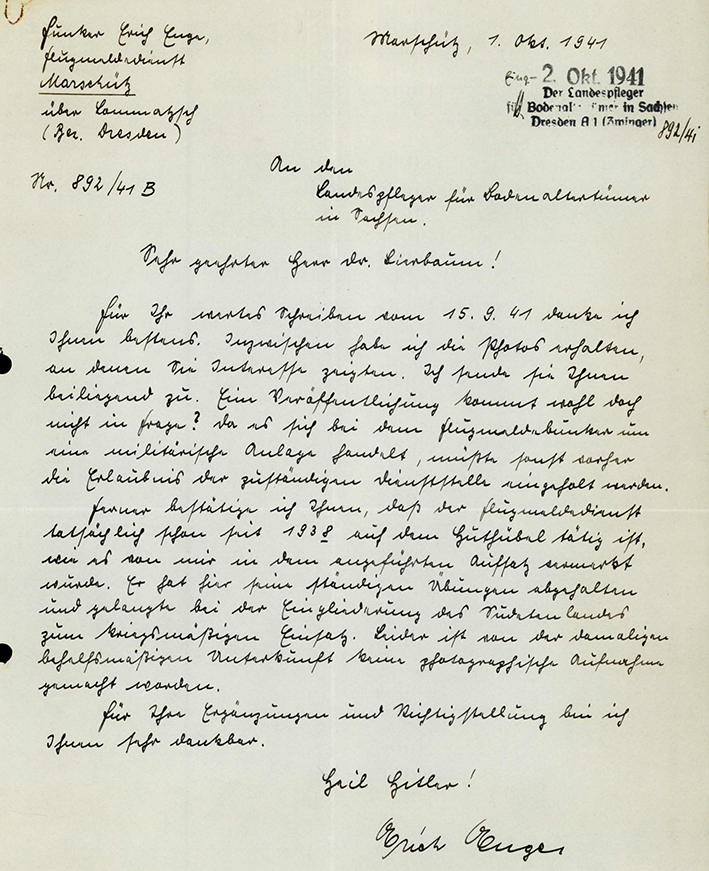 Funker Erich Enge,
Flugmeldedienst
Marschütz
über Lommatzsch
(Bez. Dresden)
Marschütz, 1. Okt. 1941
Eing. 2. Okt. 1941
Der Landespfleger
für Bodenaltertümer in Sachsen
Dresden A 1 (Zwinger)
892/41
Nr. 892/41 B
An den
Landespfleger für Bodenaltertümer
in Sachsen.
Sehr geehrter Herr Dr. Bierbaum!
Für Ihr wertes Schreiben vom 15. 9. 41 danke ich
Ihnen bestens. Inzwischen habe ich die Photos erhalten,
an denen Sie Interesse zeigten. Ich sende sie Ihnen
beiliegend zu. Ein Veröffentlichung kommt wohl doch
nicht in Frage? Da es sich bei dem Flugmeldebunker um
eine militärische Anlage handelt, müßte sonst vorher
die Erlaubnis der zuständigen Dienststelle eingeholt werden.
Ferner bestätige ich Ihnen, daß der Flugmeldedienst
tatsächlich schon seit 1938 auf dem Huthübel tätig ist,
wie es von mir in dem angeführten Aufsatz vermerkt
wurde. Er hat hier seine ständigen Übungen abgehalten
und gelangte bei der Eingliederung des Sudetenlandes
zum kriegsmäßigen Einsatz. Leider ist von der damaligen
behelfsmäßigen Unterkunft keine photographische Aufnahme
gemacht worden.
Für Ihre Ergänzungen und Richtigstellung bin ich
Ihnen sehr dankbar.
Heil Hitler!
Erich Enge